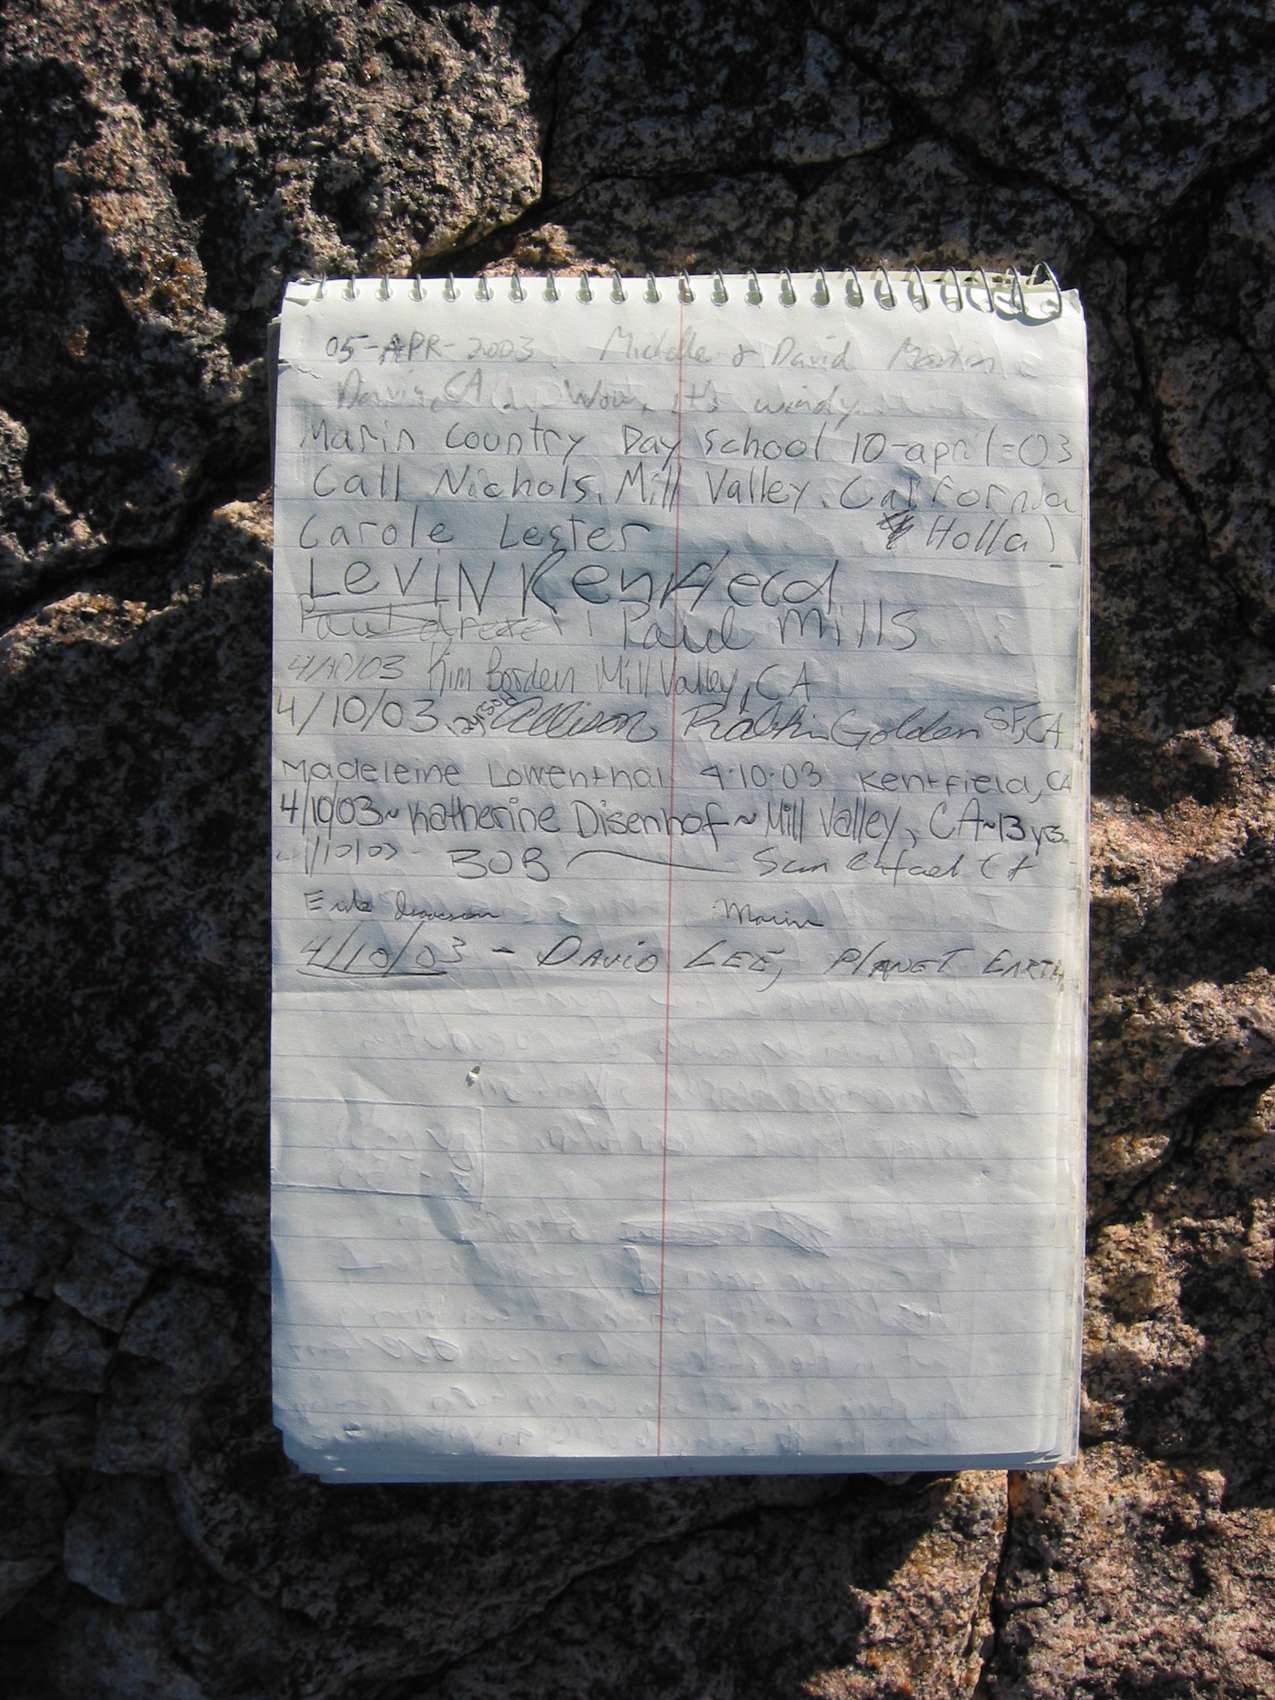 05-APR-2003 Michelle & David Martin
Davis, CA Wow, it's windy
Marin Country Day School 10-april-03
Call Nichols. Mill Valley. California
Carole Lester Holla!
LeviN Kenfield
Paul Mills
4/10/03 Kim Borden Mill Valley, CA
4/10/03 12 yrs old Allison Rabkin Golden SF, CA
Madeleine Lowenthal 4·10·03 Kentfield, CA
4/10/03~Katherine Disenhof~Mill Valley, CA~13 yrs.
4/10/03 - BOB San Rafael CA
Marin
4/10/03 - DAVID LEE, PLANET EARTH